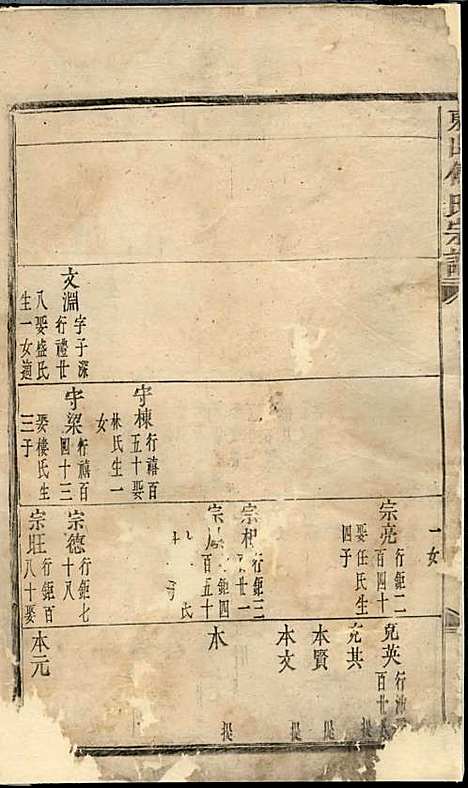 氏宗譜
一女
宗亮行鉅二
百四十
娶任氏生
四子
克英行池
百廿
克其
本賢
提
本文
提
宗
行鉅三
廿一
宗
鉅四
百五十
氏
本
提
守棟行禧百
五十娶
林氏生一
女
文淵字子深
行禮廿
八娶盛氏
生一女適
守梁行禧百
四十三
娶樓氏生
三子
宗德行鉅七
十八
宗旺行鉅百
八十娶
本元